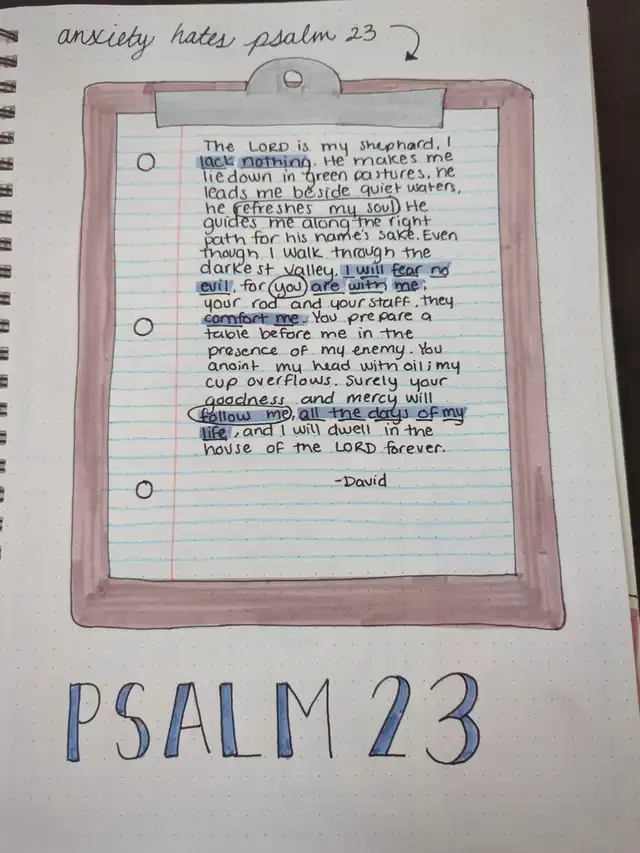 anxiety hates psalm 23
The LORD is my shephard, I
lack nothing. He makes me
lie down in green pastures, he
leads me beside quiet waters,
he refreshes my soul. He
guides me along the right
path for his name's sake. Even
though I walk through the
darkest valley, I will fear no
evil, for you are with me;
your rod and your staff, they
comfort me. You prepare a
table before me in the
presence of my enemy. You
anoint my head with oil; my
cup overflows. Surely your
goodness and mercy will
follow me, all the days of my
life, and I will dwell in the
house of the LORD forever.
-David
PSALM 23